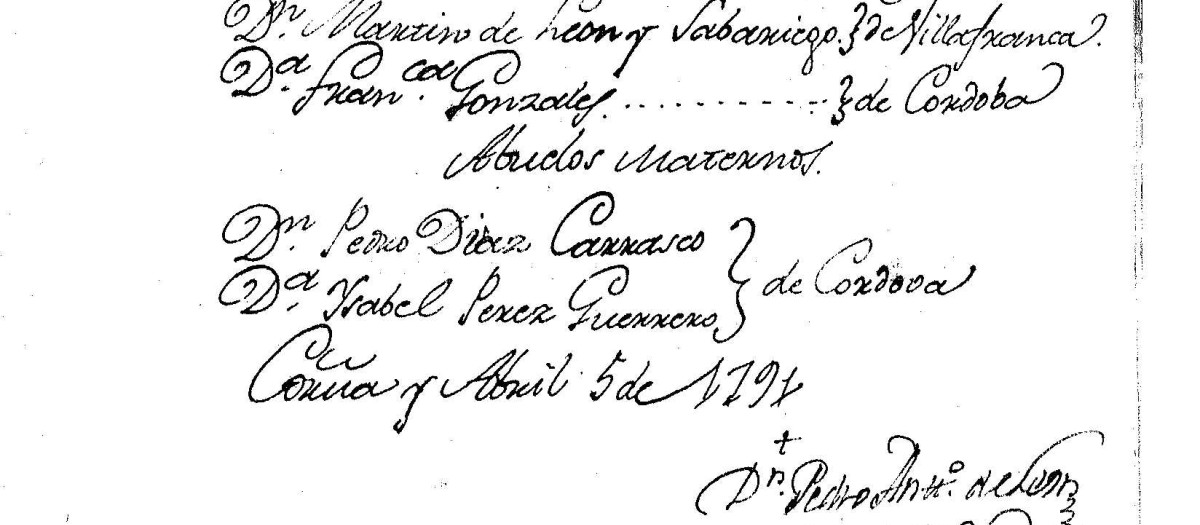 Dn. Martin de Leon y Sabariego. } de Villafranca.
Da. Franca. Gonzales. ............ } de Cordoba
Abuelos Maternos.
Dn. Pedro Diaz Carrasco
Da. Ysabel Perez Guerrero } de Cordova
Coruña y Abril 5 de 1791
Dn. Pedro Antto. de Leon